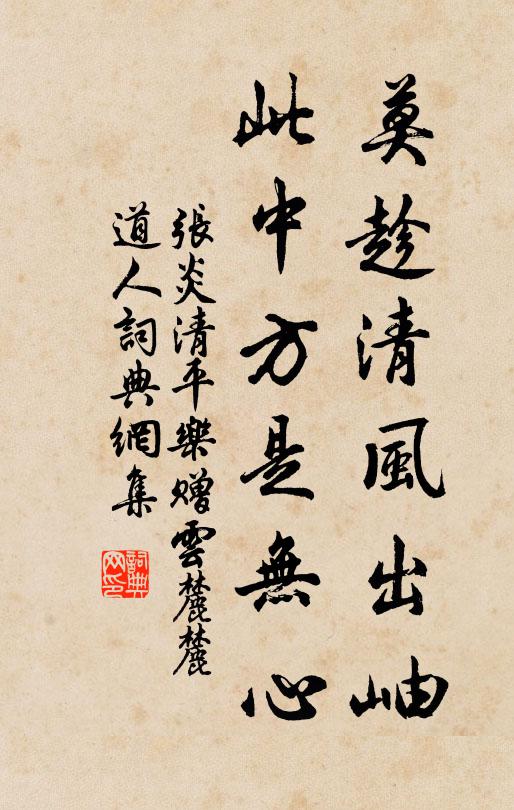 莫趁清風出岫
此中方是無心
張炎清平樂贈雲麓麓
道人詞典網集
詞典
网印